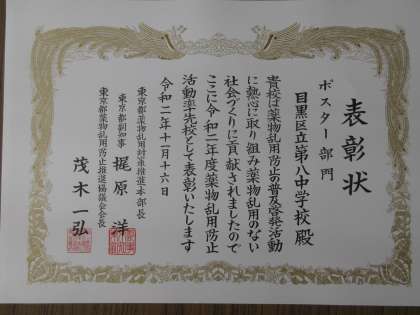 表彰状
ポスター部門
目黒区立第八中学校 殿
貴校は薬物乱用防止の普及啓発活動
に熱心に取り組み薬物乱用のない
社会づくりに貢献されましたので
ここに令和二年度薬物乱用防止
活動率先校として表彰いたします
令和二年十一月十六日
東京都薬物乱用対策推進本部長
東京都副知事 梶原 洋
東京都薬物乱用防止推進協議会会長
茂木一弘